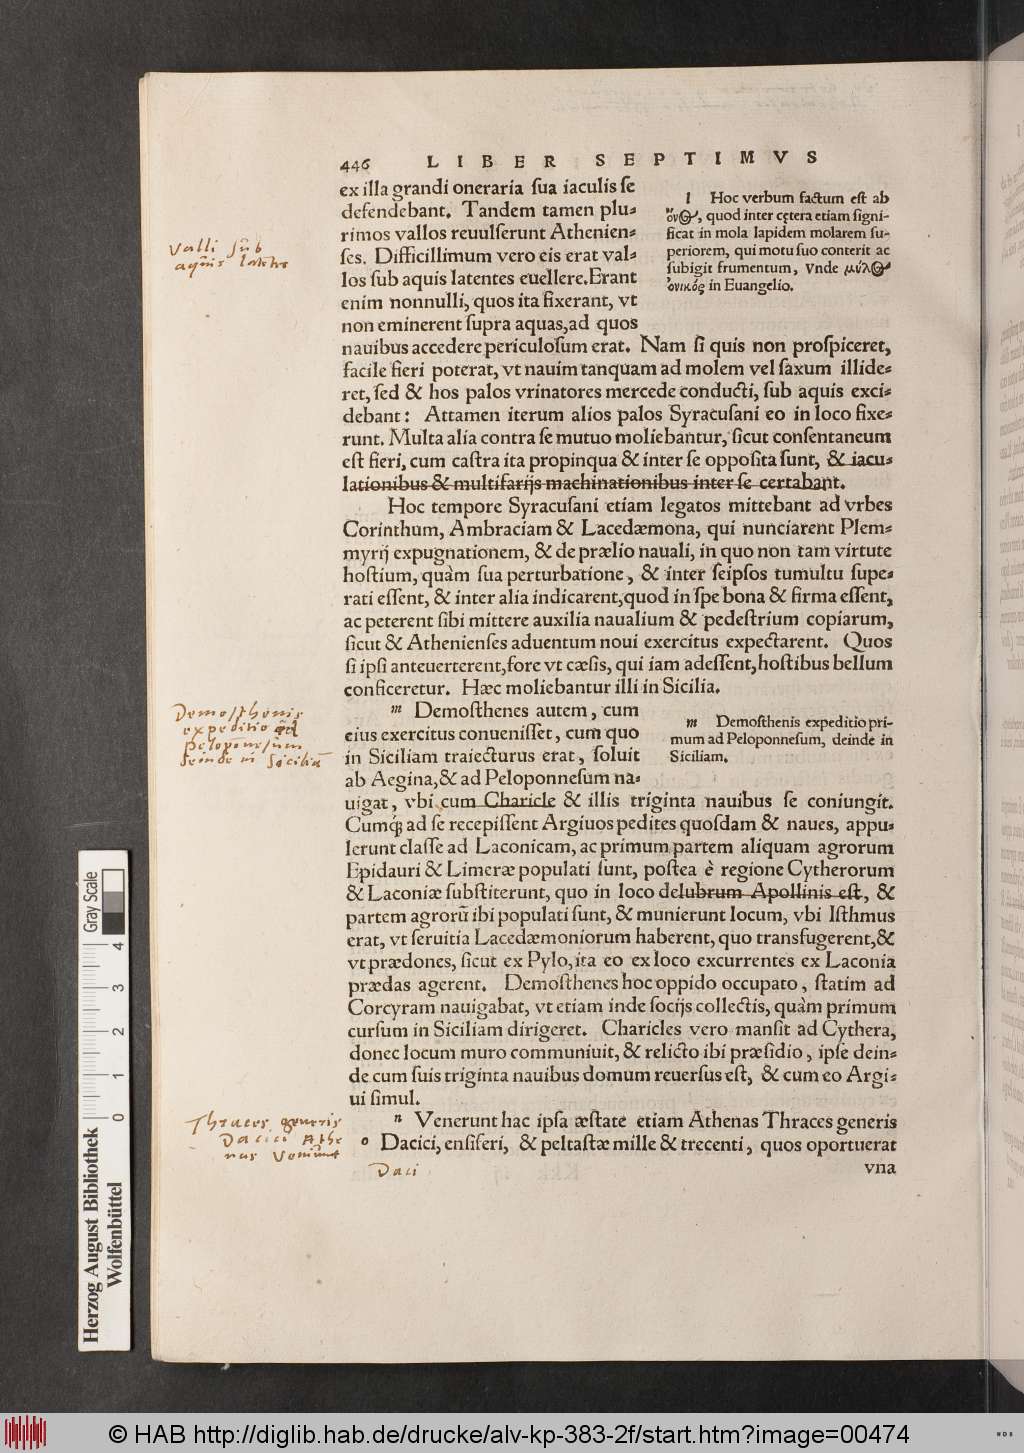 446 LIBER SEPTIMVS
ex illa grandi oneraria sua iaculis se
defendebant. Tandem tamen plu⸗
rimos vallos reuulserunt Athenien⸗
ses. Difficillimum vero eis erat val⸗
los sub aquis latentes euellere. Erant
enim nonnulli, quos ita fixerant, vt
non eminerent supra aquas, ad quos
l Hoc verbum factum est ab
ὄνος, quod inter cętera etiam signi-
ficat in mola lapidem molarem su-
periorem, qui motu suo conterit ac
subigit frumentum, Vnde μύλος
ὀνικός in Euangelio.
Valli sub
aquis latētes
nauibus accedere periculosum erat. Nam si quis non prospiceret,
facile fieri poterat, vt nauim tanquam ad molem vel saxum illide⸗
ret, sed & hos palos vrinatores mercede conducti, sub aquis exci⸗
debant: Attamen iterum alios palos Syracusani eo in loco fixe⸗
runt. Multa alia contra se mutuo moliebantur, sicut consentaneum
est fieri, cum castra ita propinqua & inter se opposita sunt, & iacu⸗
lationibus & multifarijs machinationibus inter se certabant.
Hoc tempore Syracusani etiam legatos mittebant ad vrbes
Corinthum, Ambraciam & Lacedæmona, qui nunciarent Plem⸗
myrij expugnationem, & de prælio nauali, in quo non tam virtute
hostium, quàm sua perturbatione, & inter seipsos tumultu supe⸗
rati essent, & inter alia indicarent, quod in spe bona & firma essent,
ac peterent sibi mittere auxilia naualium & pedestrium copiarum,
sicut & Athenienses aduentum noui exercitus expectarent. Quos
si ipsi anteuerterent, fore vt cæsis, qui iam adessent, hostibus bellum
conficeretur. Hæc moliebantur illi in Sicilia.
m Demosthenes autem, cum
eius exercitus conuenisset, cum quo
in Siciliam traiecturus erat, soluit
ab Aegina, & ad Peloponnesum na⸗
m Demosthenis expeditio pri-
mum ad Peloponnesum, deinde in
Siciliam.
Demosthenis
expeditio ad
peloponesum
deinde in Siciliā
uigat, vbi cum Charicle & illis triginta nauibus se coniungit.
Cumq́; ad se recepissent Argiuos pedites quosdam & naues, appu⸗
lerunt classe ad Laconicam, ac primum partem aliquam agrorum
Epidauri & Limeræ populati sunt, postea è regione Cytherorum
& Laconiæ substiterunt, quo in loco delubrum Apollinis est, &
partem agrorū ibi populati sunt, & munierunt locum, vbi Isthmus
erat, vt seruitia Lacedæmoniorum haberent, quo transfugerent, &
vt prædones, sicut ex Pylo, ita eo ex loco excurrentes ex Laconia
prædas agerent. Demosthenes hoc oppido occupato, statim ad
Corcyram nauigabat, vt etiam inde socijs collectis, quàm primum
cursum in Siciliam dirigeret. Charicles vero mansit ad Cythera,
donec locum muro communiuit, & relicto ibi præsidio, ipse dein⸗
de cum suis triginta nauibus domum reuersus est, & cum eo Argi⸗
ui simul.
n Venerunt hac ipsa æstate etiam Athenas Thraces generis
o Dacici, ensiferi, & peltastæ mille & trecenti, quos oportuerat
vna
Thraces generis
Dacici Athe
nas Veniunt
Daci
Gray Scale
0 1 2 3 4
Herzog August Bibliothek
Wolfenbüttel
© HAB http://diglib.hab.de/drucke/alv-kp-383-2f/start.htm?image=00474